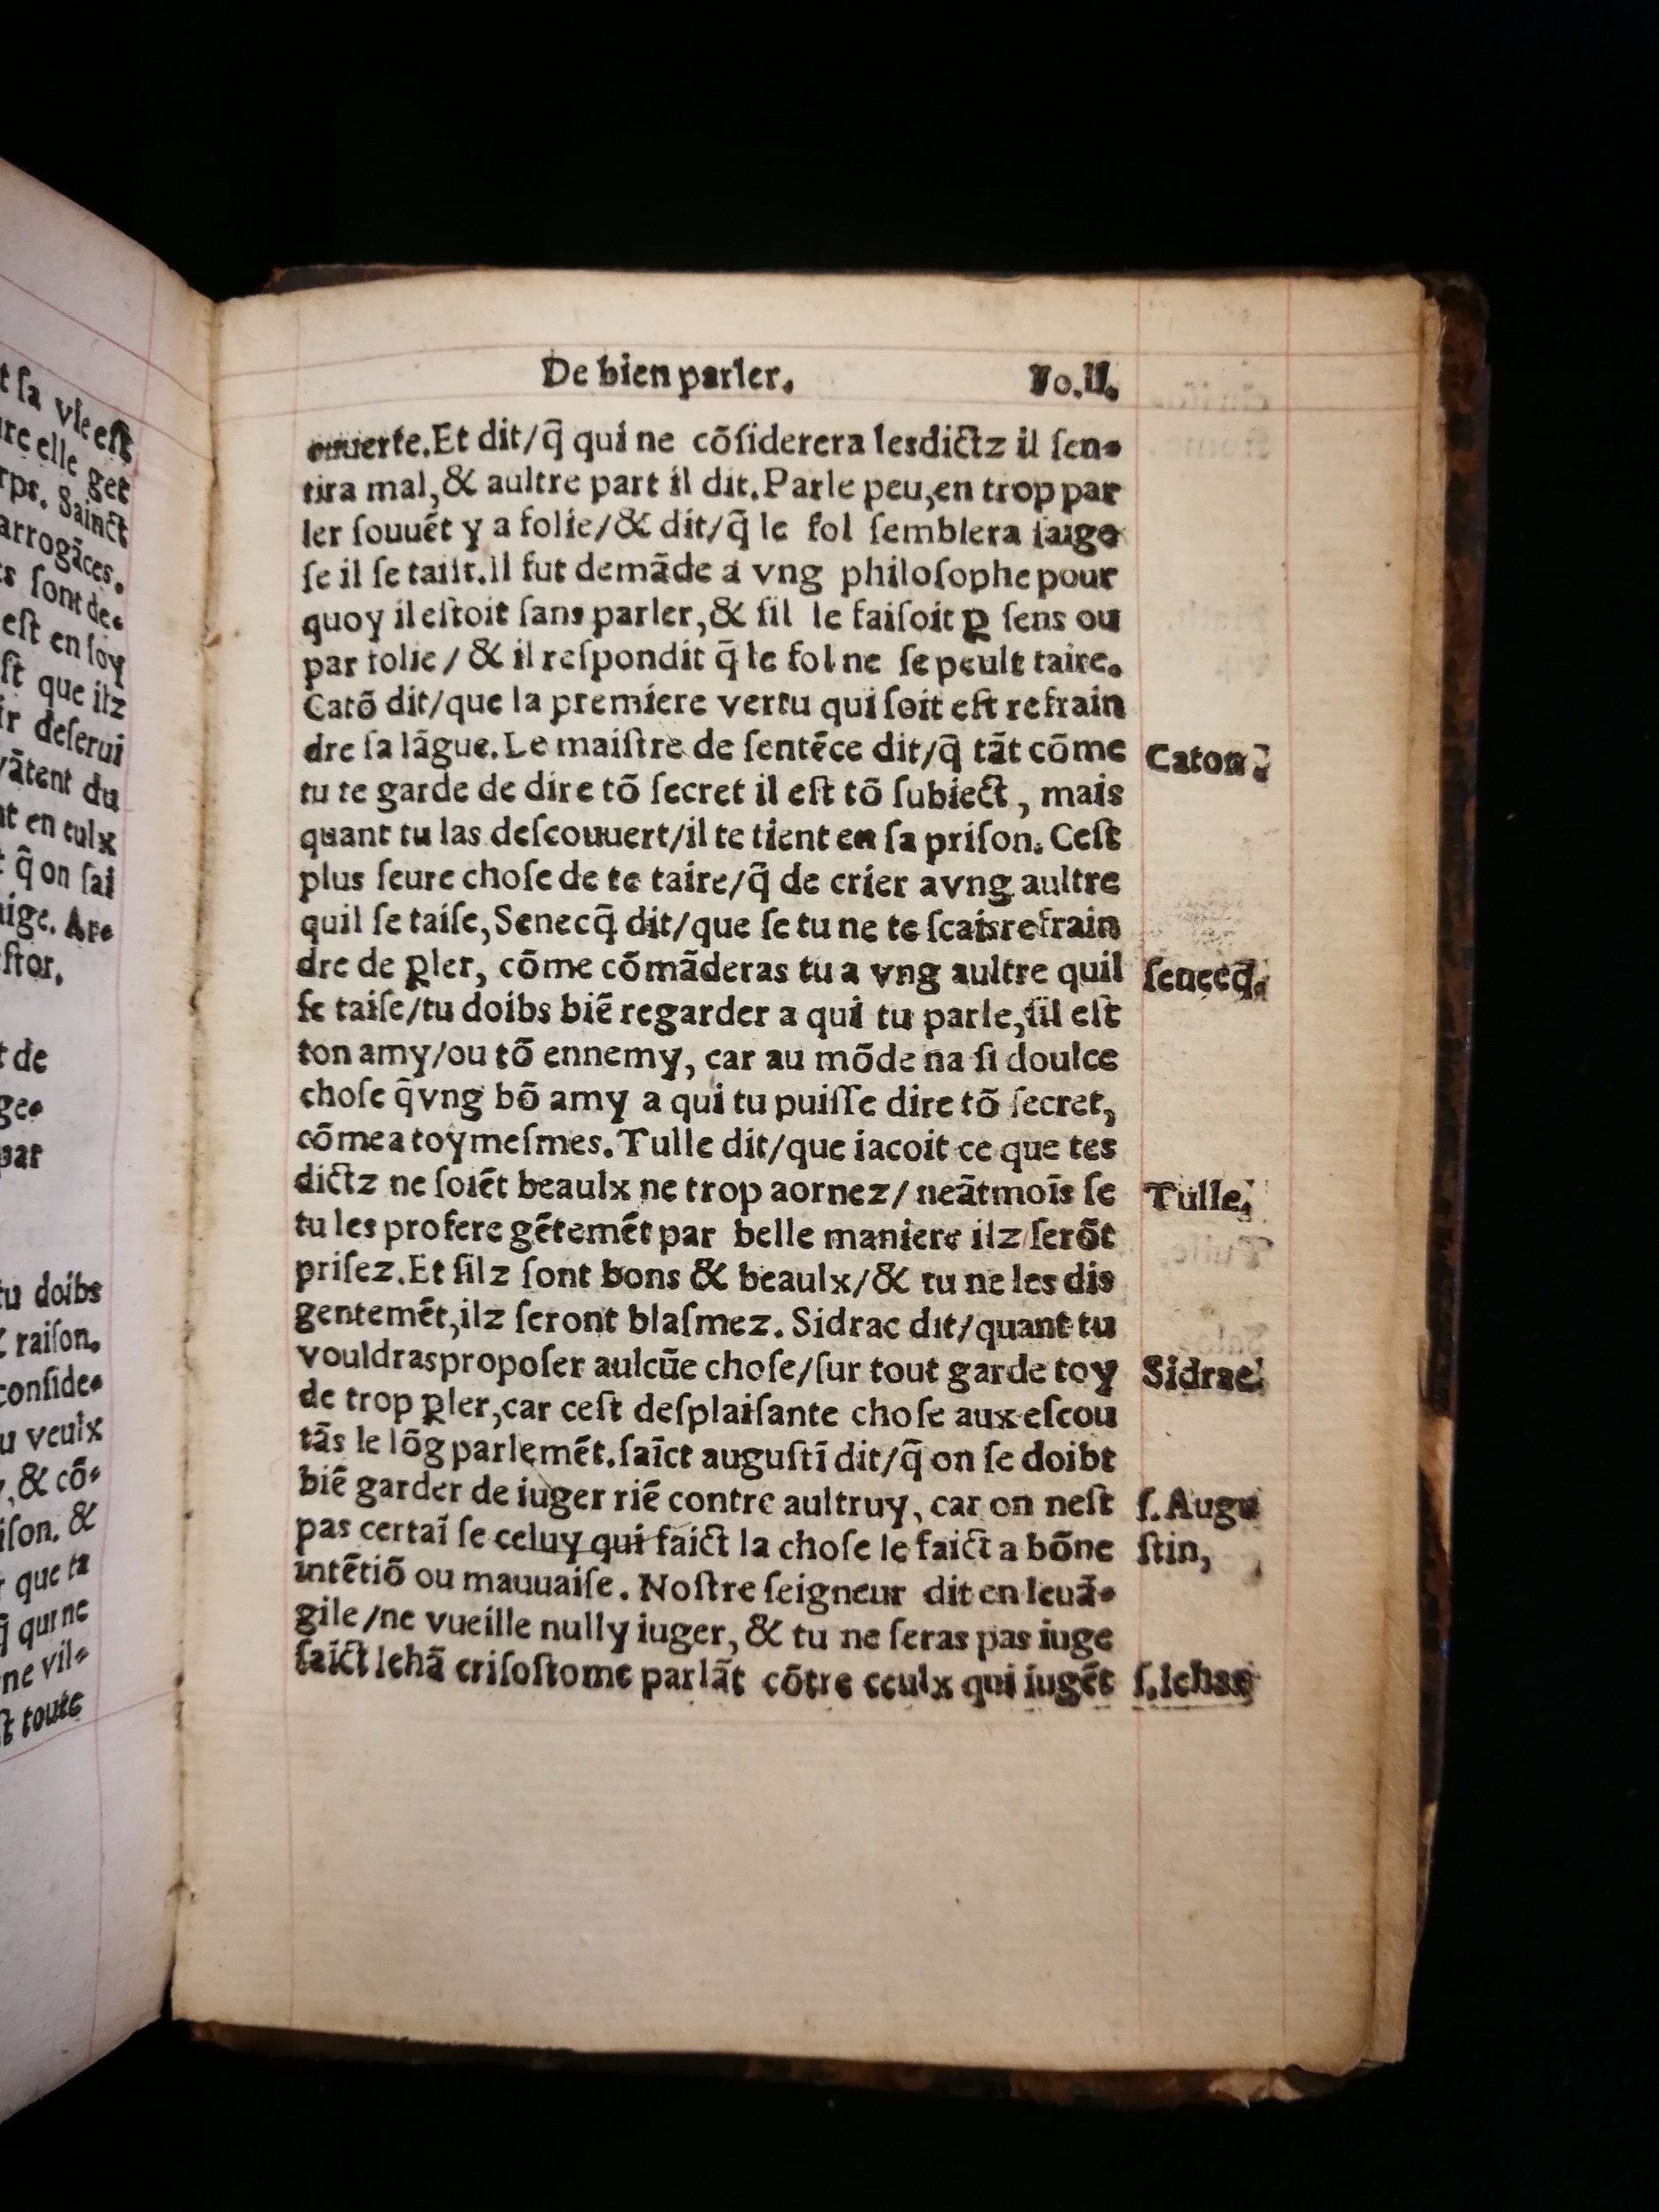 t ſa vie eſt
re elle get
rps. Sainct
arrogãces.
s ſont de-
eſt en ſoy
ſt que ilz
ir deſerui
vãtent du
nt en eulx
q̃ on ſai
uige. Are
ſtor,
t de
ge-
par
tu doibs
raiſon,
conſide-
u veulx
, & cõ-
iſon. &
que ta
q̃ qui ne
ne vil-
ſt toute
De bien parler. Fo.II.
ouuerte.Et dit/q̃ qui ne cõſiderera lesdictz il ſen-
tira mal,& aultre part il dit.Parle peu,en trop par
ler ſouuẽt y a folie/& dit/q̃ le fol ſemblera ſaige
ſe il ſe taiſt.Il fut demãde a vng philoſophe pour
quoy il eſtoit ſans parler,& ſil le faiſoit ꝑ ſens ou
par folie/ & il reſpondit q̃ le fol ne ſe peult taire.
Catõ dit/que la premiere vertu qui ſoit eſt refrain
dre ſa lãgue.Le maiſtre de ſentẽce dit/q̃ tãt cõme
Caton.
tu te garde de dire tõ ſecret il eſt tõ ſubiect, mais
quant tu las deſcouuert/il te tient en ſa priſon. Ceſt
plus ſeure choſe de te taire/q̃ de crier a vng aultre
quil ſe taiſe,Senecq̃ dit/que ſe tu ne te ſcais refrain
dre de ꝑler, cõme cõmãderas tu a vng aultre quil
ſenecq̃.
ſe taiſe/tu doibs biẽ regarder a qui tu parle,ſil eſt
ton amy/ou tõ ennemy, car au mõde na ſi doulce
choſe q̃ vng bõ amy a qui tu puiſſe dire tõ ſecret,
cõme a toy meſmes. Tulle dit/que iacoit ce que tes
dictz ne ſoiẽt beaulx ne trop aornez/ neãtmoĩs ſe
Tulle.
tu les profere gẽtemẽt par belle maniere ilz ſerõt
priſez.Et ſilz ſont bons & beaulx/& tu ne les dis
gentemẽt,ilz ſeront blaſmez. Sidrac dit/quant tu
vouldras propoſer aulcũe choſe/ſur tout garde toy
Sidrac.
de trop ꝑler,car ceſt deſplaiſante choſe aux eſcou
tãs le lõg parlemẽt.ſaĩct auguſtĩ dit/q̃ on ſe doibt
biẽ garder de iuger riẽ contre aultruy, car on neſt
ſ.Augu
pas certaĩ ſe celuy qui faict la choſe le faict a bõne
ſtin,
intẽtiõ ou mauuaiſe. Noſtre ſeigneur dit en leuã-
gile/ne vueille nully iuger, & tu ne ſeras pas iuge
ſaĩct Iehã criſoſtome parlãt cõtre ceulx qui iugẽt